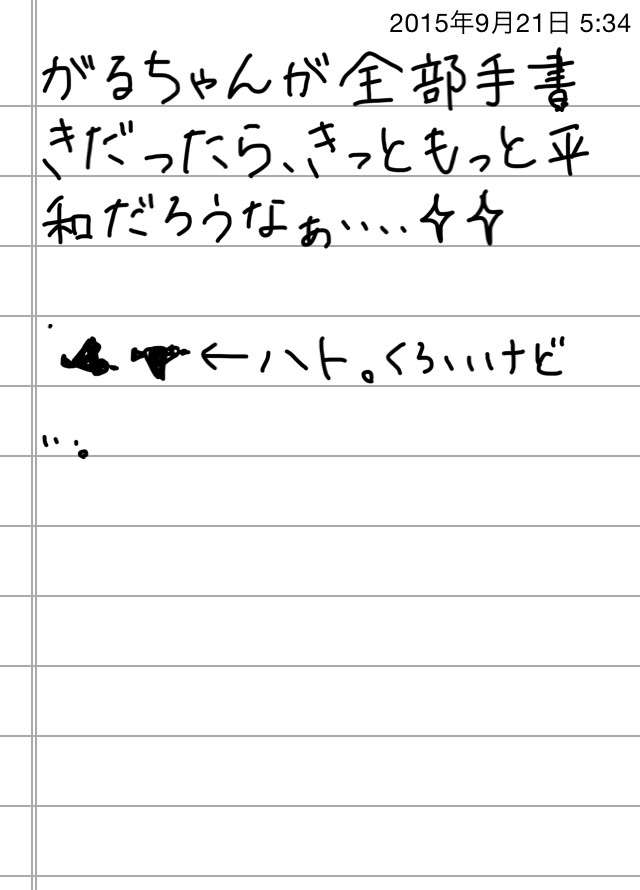 2015年9月21日 5:34
がるちゃんが全部手書
きだったら、きっともっと平
和だろうなぁ‥‥✧✧
←ハト。くろいけど
…。